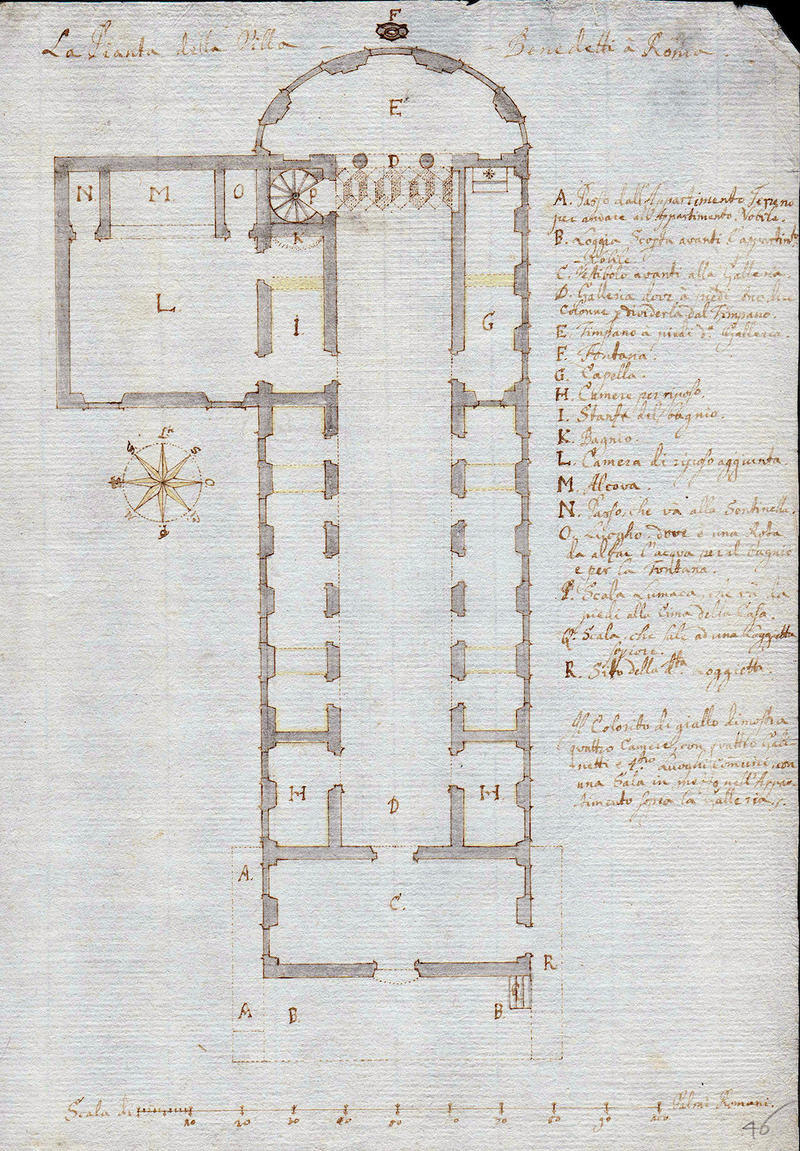 F
La Pianta della Villa — Benedetti à Roma.
E
D
N M O P
K
L
I G
H H
D
A. C.
R
A B. B. Q
A. Passo dall'Appartimento Tereno
per andare all'Appartimento Nobile.
B. Loggia Scopta avanti l'appartimto
Nobile.
C. Vestibolo avanti alla Galleria.
D. Galleria dove à piedi sono due
Colonne p dividerla dal Timpano.
E. Timpano a piedi da Galleria.
F. Fontana.
G. Capella.
H. Camere per riposo.
I. Stanza del bagnio.
K. Bagnio.
L. Camera di riposo aggiunta.
M. Alcova.
N. Passo, che và alla Sentinella.
O. Luogho, dove è una Rota
da alzar l'acqua per il bagnio
e per la Fontana.
P. Scala a lumaca, che và da
piedi alla Cima della Casa.
Q. Scala, che sale ad una Loggietta
sopiore.
R. Sito della sta Loggietta.
Il Colorito di giallo dimostra
quattro Camere, con quattro Gabi-
netti e 4tro Luoghi Comuni, con
una Sala in mezzo nell'Appar-
timento sopra la Galleria.
Scala di 10 20 30 40 50 60 70 80 90 100 Palmi Romani.
46